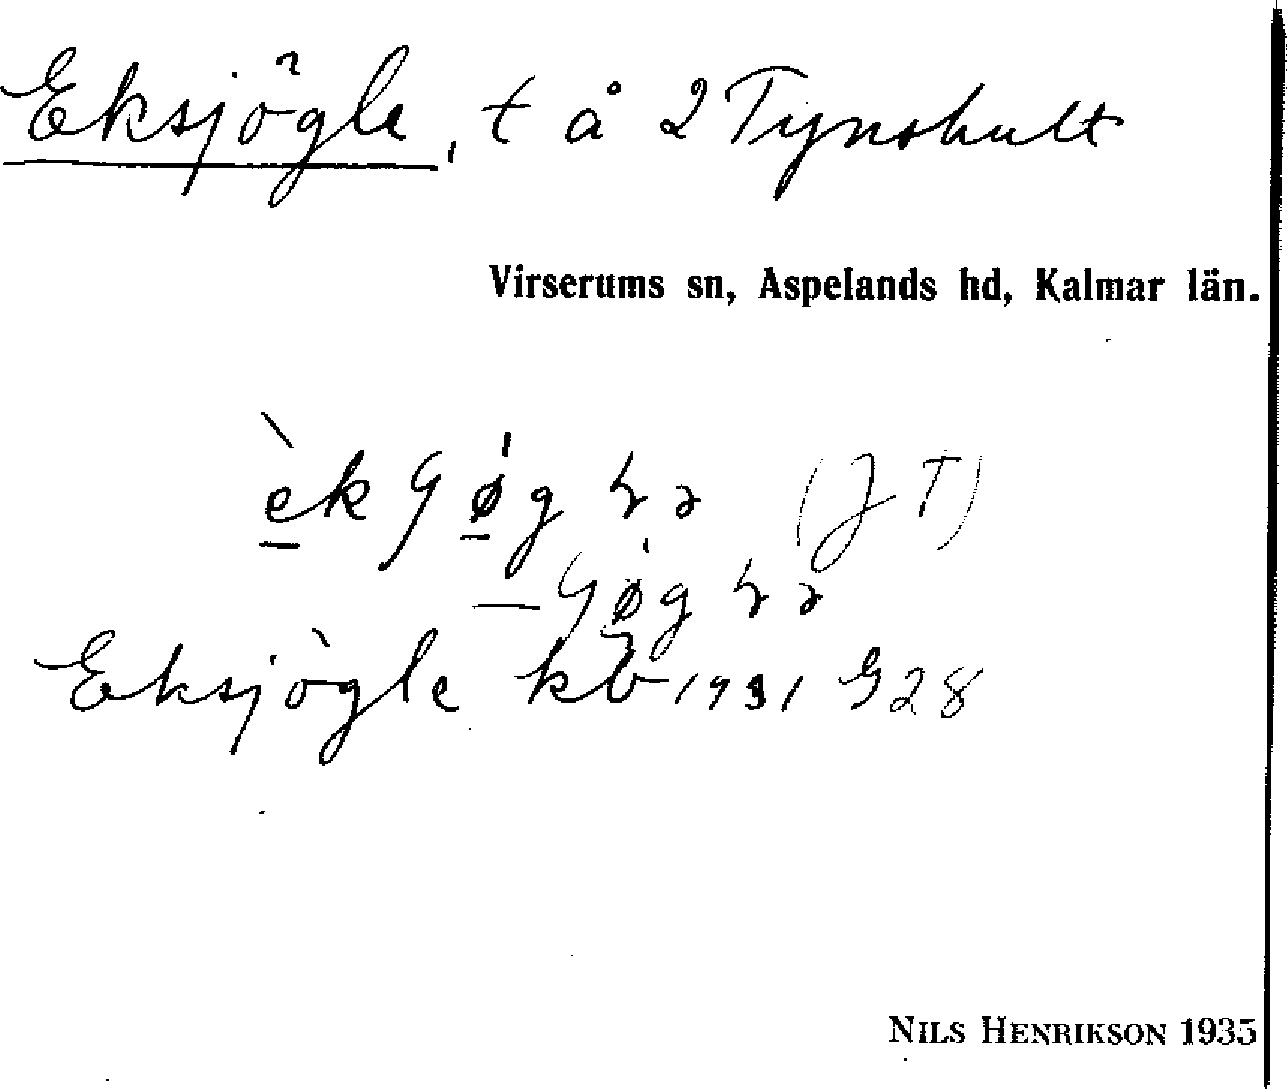 Eksjögle, t å 2 Tynshult
Virserums sn, Aspelands hd, Kalmar län.
(JT)
Eksjögle kb 1931 G28
NILS HENRIKSON 1935